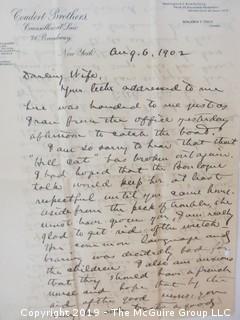 Coudert Brothers,
Counsellors at Law
71 Broadway
New York
Aug. 6, 1902
Darling Wife,
Your letter addressed to me
here was handed to me just as
I ran from the office yesterday
afternoon to catch the boat.
I am so sorry to hear that that
Hell cat has broken out again.
I had hoped that the
talk would keep her at least
respectful until you came home.
Aside from the peck of trouble she
must have given you I am really
glad to get rid of the wretch
Her common language and
were decidedly bad for
the children. I am also anxious
that they should have a french
nurse and hope that by the
end of the
good
Copyright © 2019 - by The McGuire Group LLC